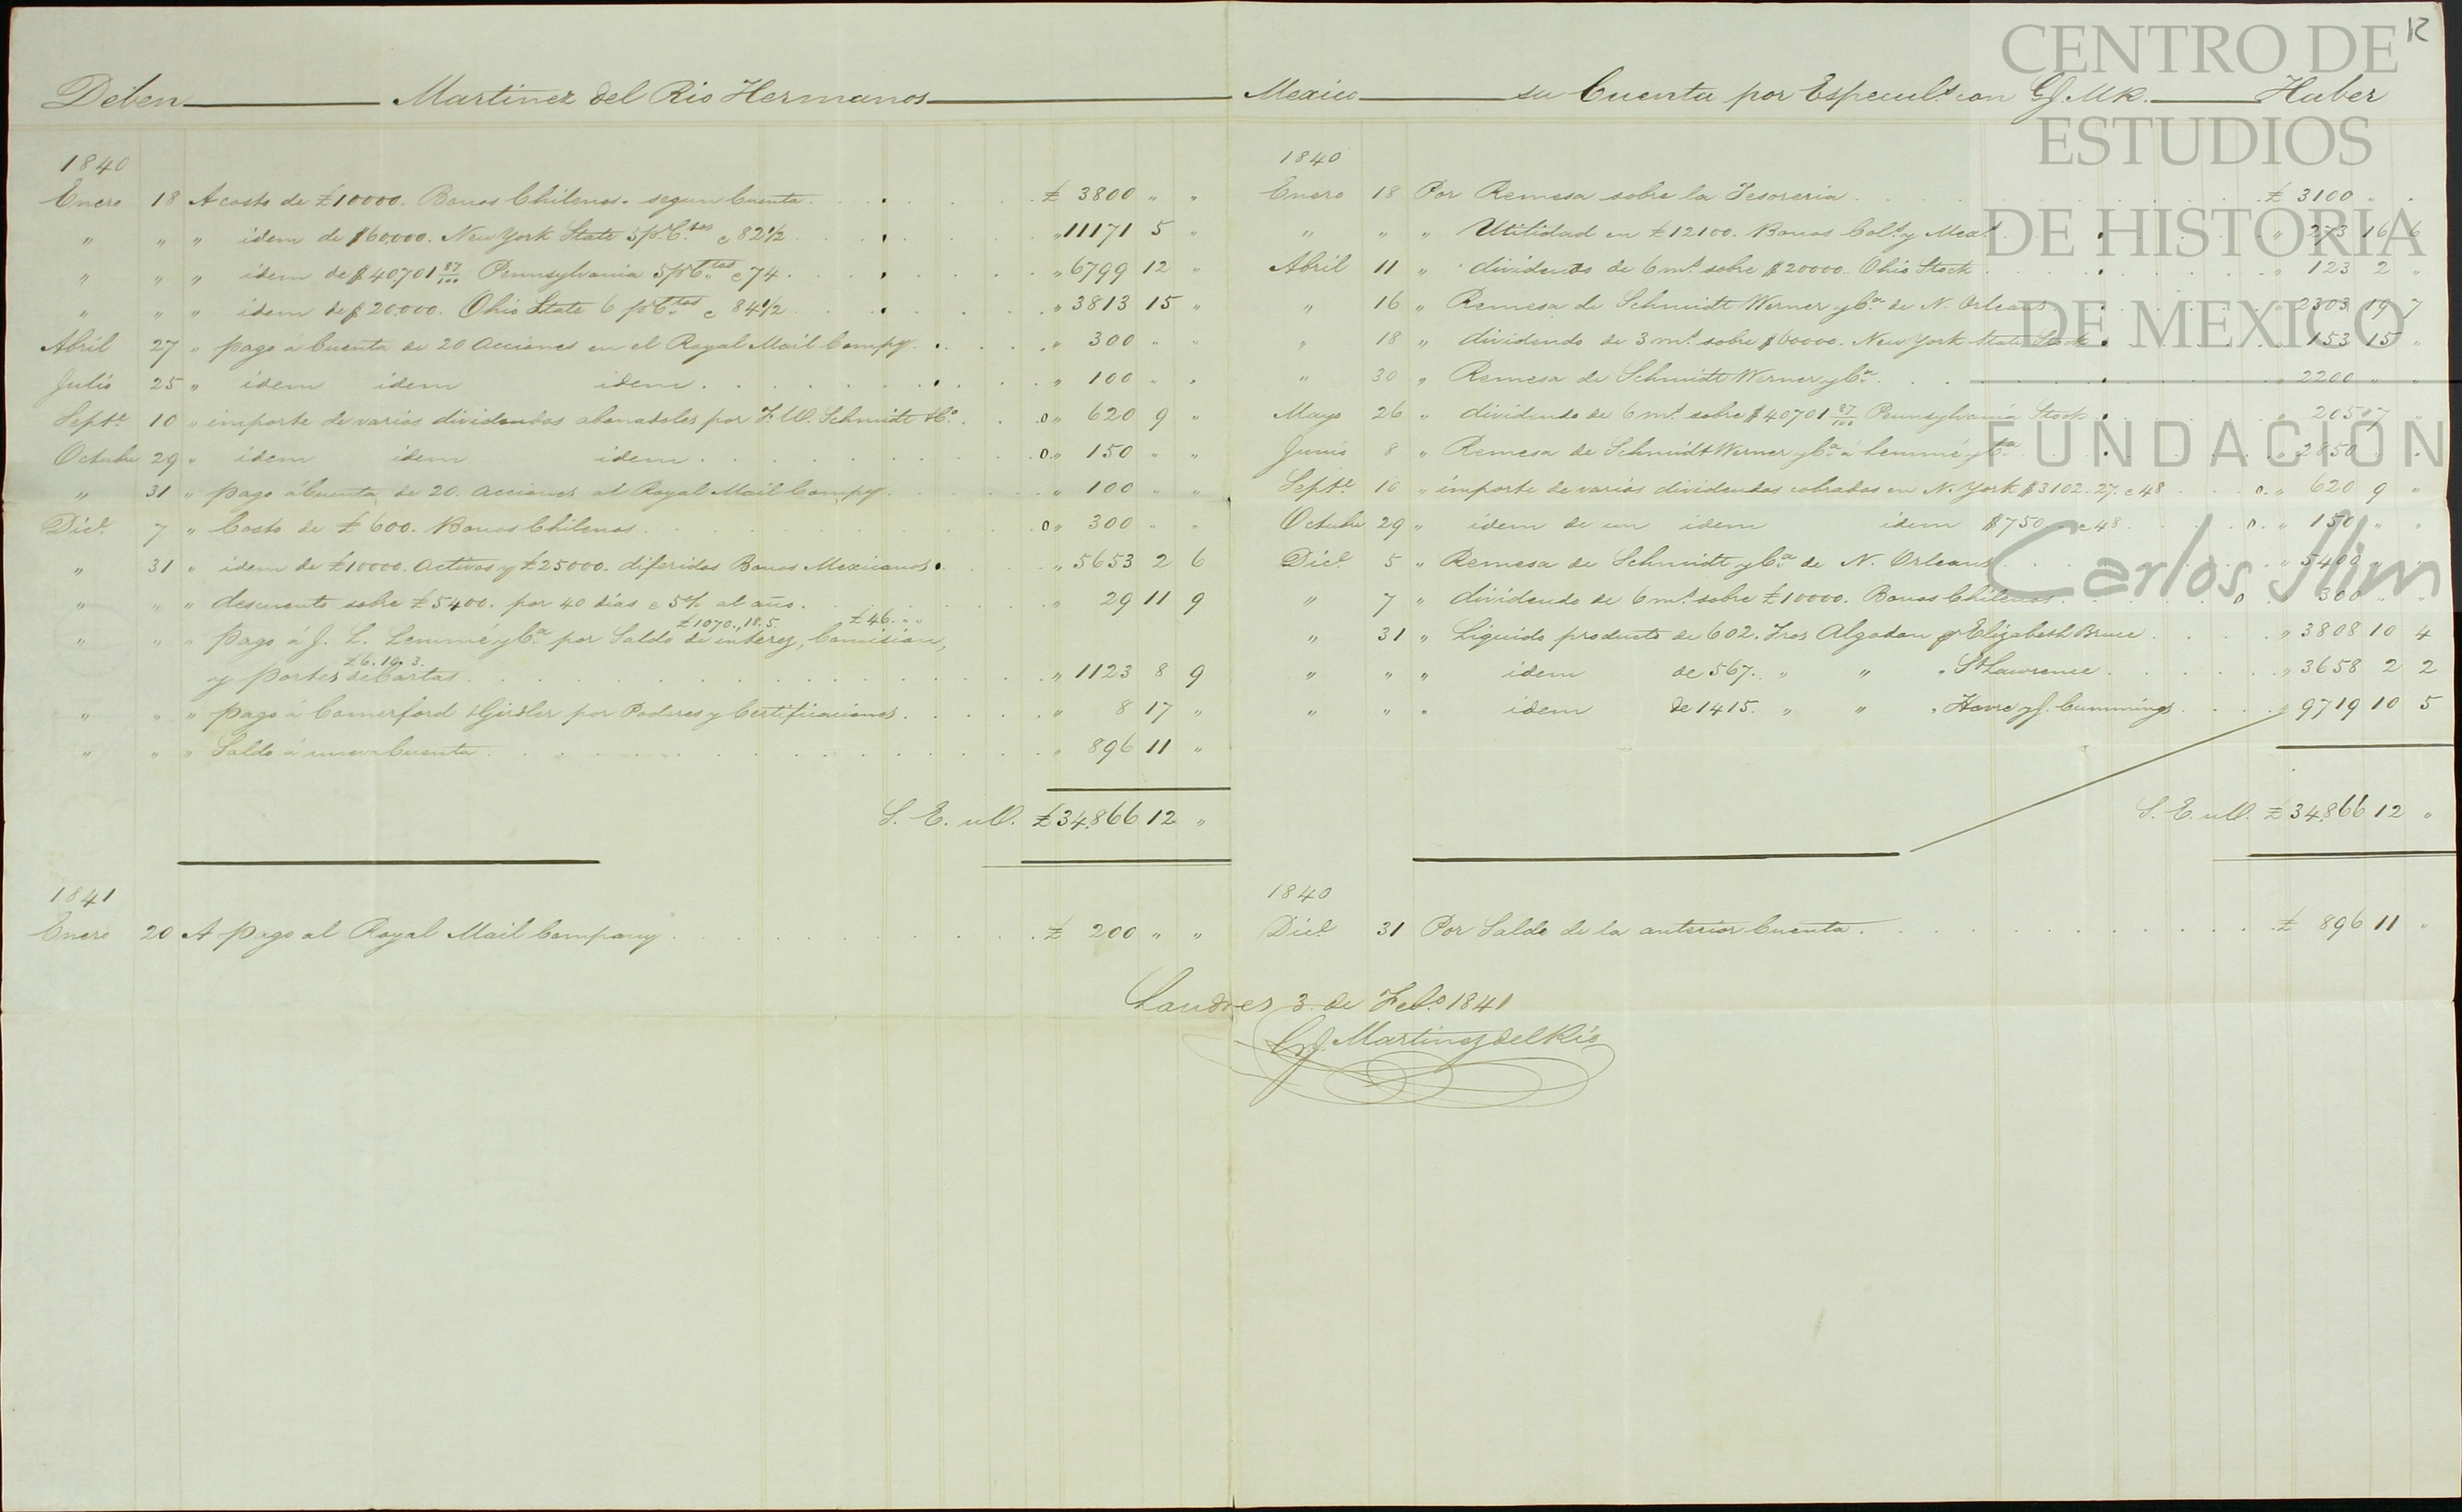 12
CENTRO DE
ESTUDIOS
DE HISTORIA
DE MEXICO
FUNDACIÓN
Carlos Slim
Deben Martinez del Rio Hermanos Mexico su Cuenta por Especul.s con G.J. M R. Haber
1840
Enero 18 A costo de £10000. Bonos Chilenos. segun Cuenta £ 3800 " "
" " " idem de $60,000. New York State 5 p% Ctos @ 82 1/2 " 11171 5 "
" " " idem de $40701 87/100 Pennsylvania 5 p% Ctos @ 74 " 6799 12 "
" " " idem de $20.000. Ohio State 6 p% Ctos @ 84 1/2 " 3813 15 "
Abril 27 " pago á Cuenta de 20 Acciones en el Royal Mail Compy. " 300 " "
Julio 25 " idem idem idem " 100 " "
Septe. 10 " importe de varios dividendos abonadoles por F. W. Schmidt & Co. 0 " 620 9 "
Octubre 29 " idem idem idem 0 " 150 " "
" 31 " pago á Cuenta de 20. Acciones al Royal Mail Compy. " 100 " "
Dice. 7 " Costo de £ 600. Bonos Chilenos 0 " 300 " "
" 31 " idem de £10000. Activos y £25000. diferidos Bonos Mexicanos " 5653 2 6
" " " descuento sobre £5400. por 40 dias @ 5% al año " 29 11 9
£1070., 18. 5. £46. " "
" " " pago á J. L. Lemmé y Ca. por Saldo de interez, Comision,
£6. 10. 3.
y portes de Cartas " 1123 8 9
" " " pago á Comerford & Girdler por Poderes y Certificaciones " 8 17 "
" " " Saldo á nueva Cuenta " 896 11 "
S. E. u O. £34,866 12 "
1841
Enero 20 A pago al Royal Mail Company £ 200 " "
1840
Enero 18 Por Remesa sobre la Tesoreria £ 3100 " "
" " " Utilidad en £12100. Bonos Col.s y Mex.s " 273 16 6
Abril 11 " dividendo de 6 m.s sobre $20000. Ohio Stock " 123 2 "
" 16 " Remesa de Schmidt Werner y Ca. de N. Orleans " 2303 19 7
" 18 " dividendo de 3 m.s sobre $60000. New York State Stock " 153 15 "
" 30 " Remesa de Schmidt Werner y Ca. " 2200 " "
Mayo 26 " dividendo de 6 m.s sobre $40701 87/100 Pennsylvania Stock " 205 7 "
Junio 8 " Remesa de Schmidt Werner y Ca. á Lemmé y Ca. " 2850 " "
Septe. 10 " importe de varios dividendos cobrados en N. York $3102.27. @ 48 0. " 620 9 "
Octubre 29 " idem de un idem idem $750 @ 48 0. " 150 " "
Dice. 5 " Remesa de Schmidt y Ca. de N. Orleans " 5400 " "
" 7 " dividendo de 6 m.s sobre £10000. Bonos Chilenos 0 " 300 " "
" 31 " Liquido producto de 602. Tros Algodon pr Elizabeth Bruce " 3808 10 4
" " " idem de 567. " " " St Lawrence " 3658 2 2
" " " idem de 1415. " " " Havre y J. Cummings " 9719 10 5
S. E. u O. £ 34,866 12 "
1840
Dice. 31 Por Saldo de la anterior Cuenta £ 896 11 "
Londres 3 de Febo. 1841
G. J. Martinez del Rio